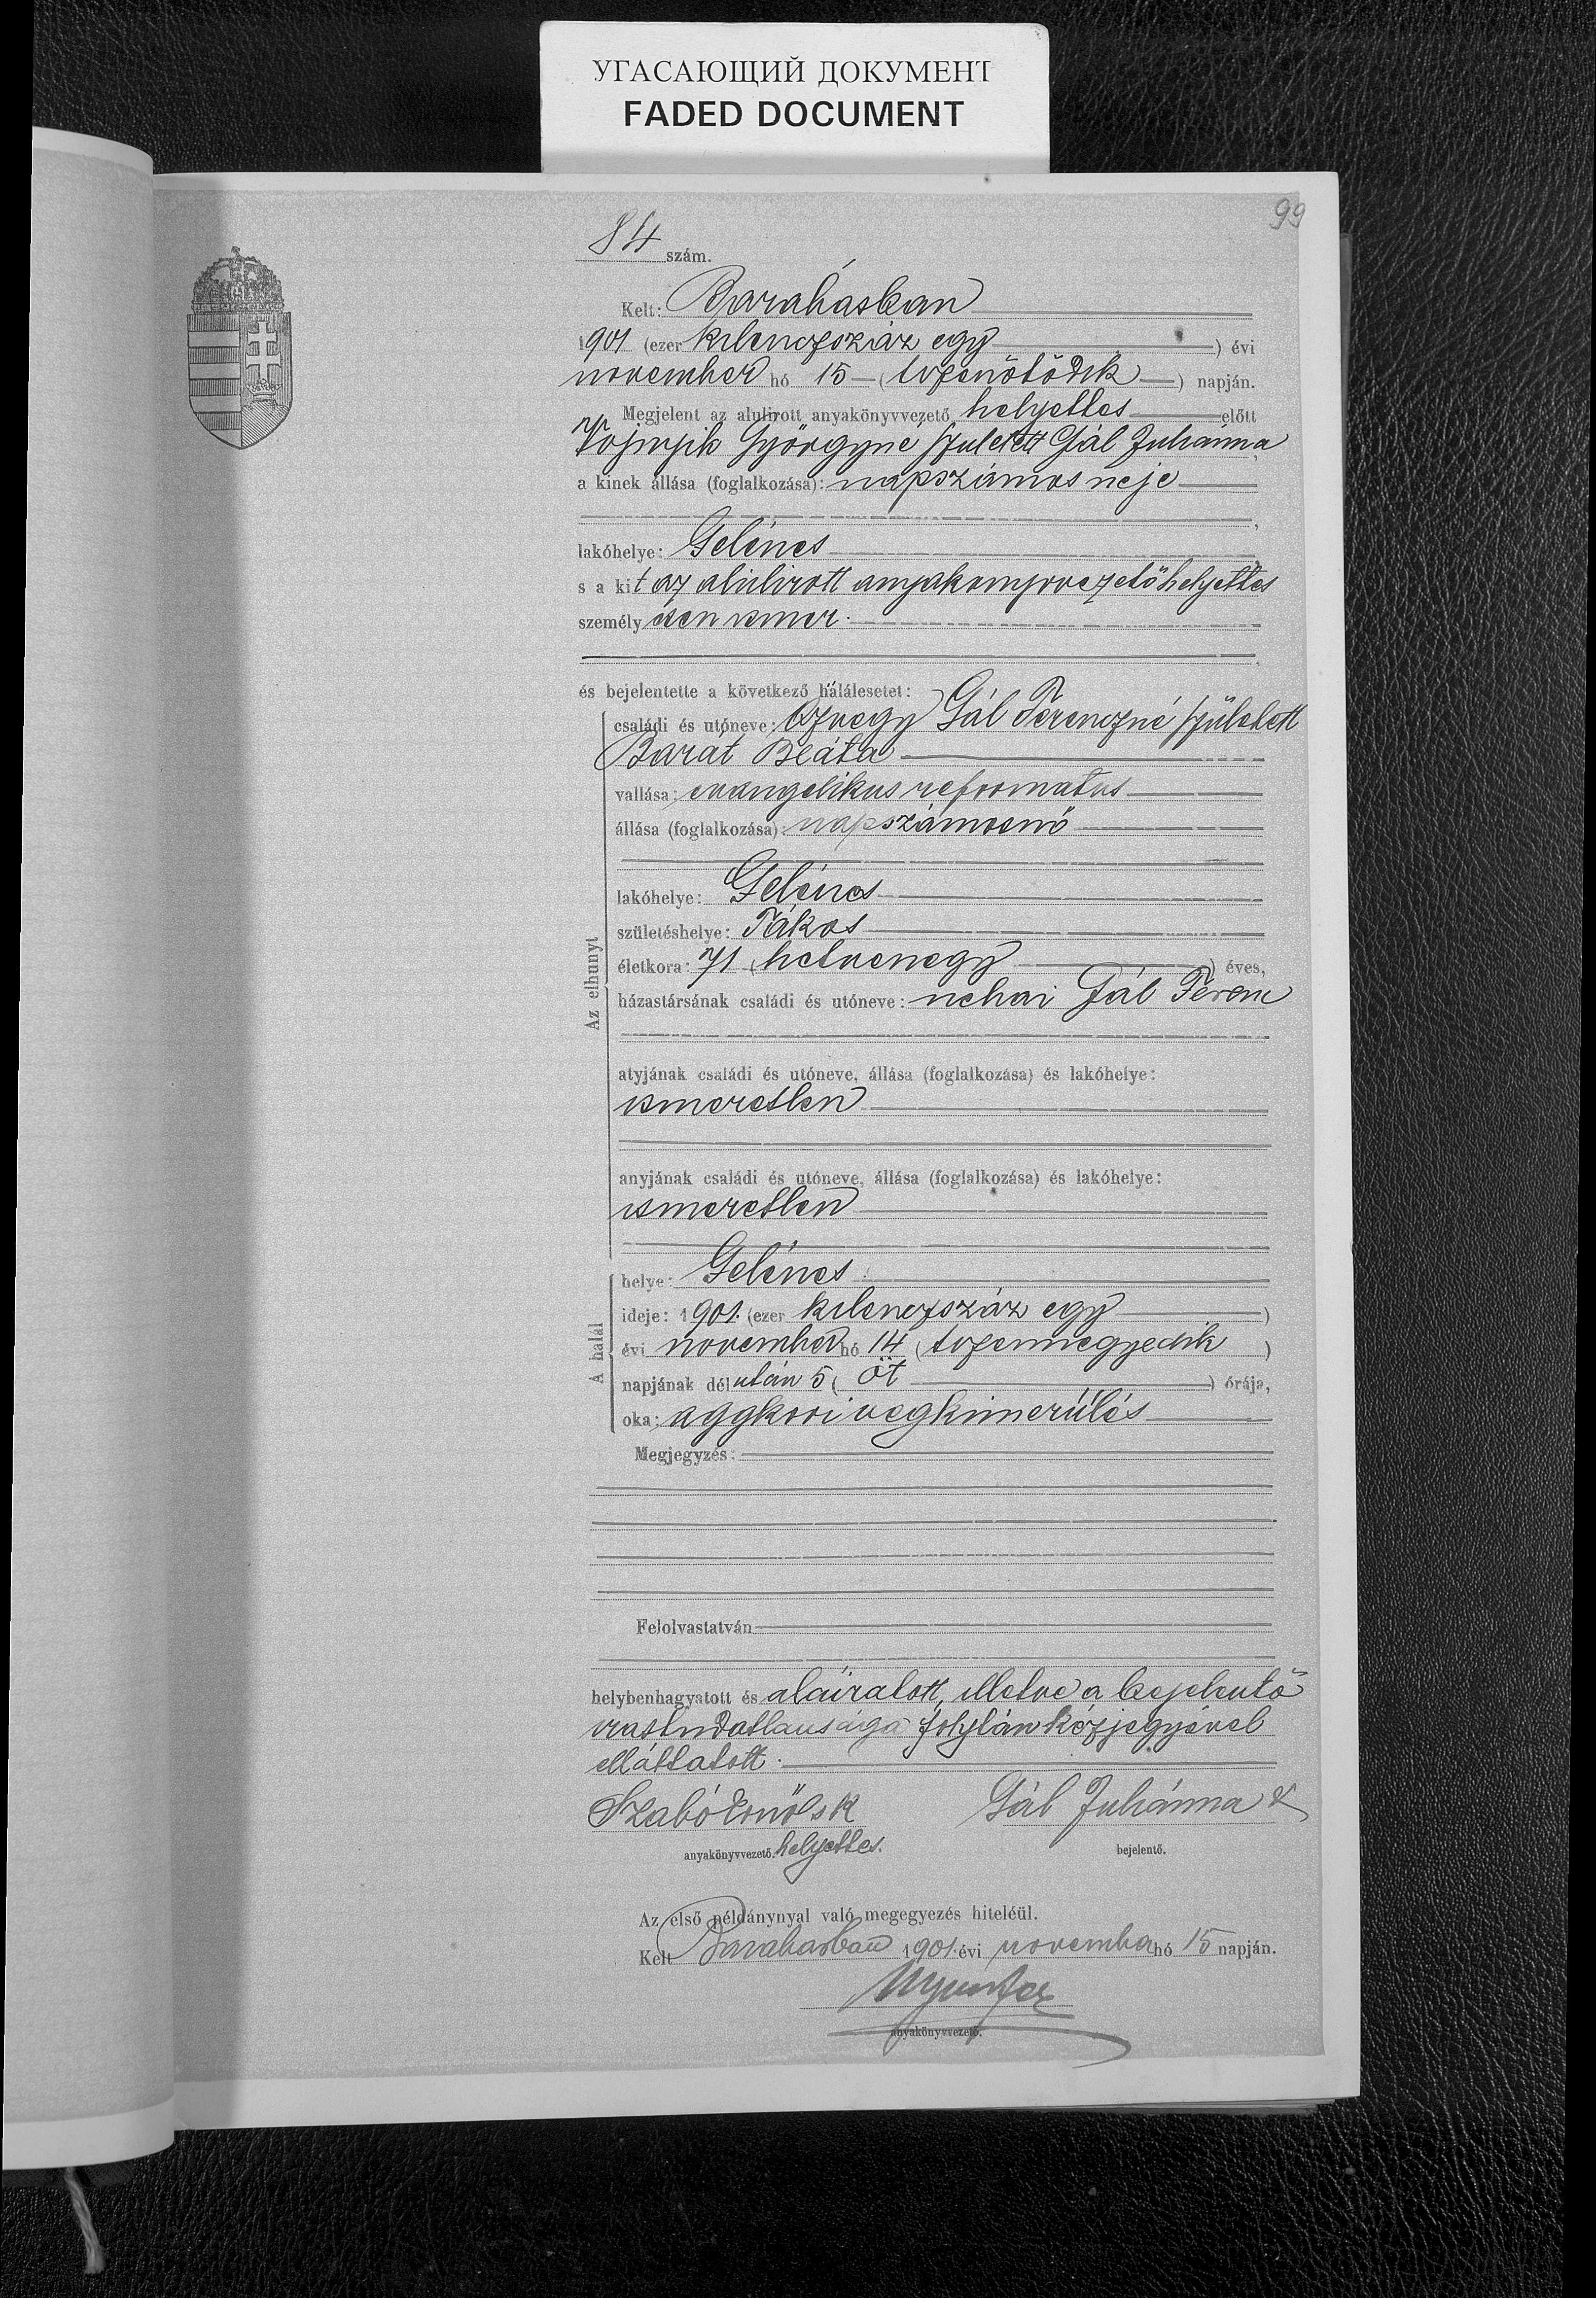 УГАСАЮЩИЙ ДОКУМЕНТ
FADED DOCUMENT
99
84 szám.
Kelt: Barabásban
1901 (ezer kilenczszáz egy) évi
november hó 15 (tizenötödik) napján.
Megjelent az alulirott anyakönyvvezető helyettes előtt
Györgyné született Gál Juliánna
a kinek állása (foglalkozása): napszámos neje
lakóhelye: Gelénes
s a kit az alulirott anyakönyvvezetőhelyettes
személyesen ismer.
és bejelentette a következő halálesetet:
családi és utóneve: özvegy Gál Ferenczné született
Barát Beáta
vallása: evangelikus reformatus
állása (foglalkozása): napszámosnő
lakóhelye: Gelénes
születéshelye: Tákos
életkora: 71 (hetvenegy) éves,
Az elhunyt
házastársának családi és utóneve: néhai Gál Ferenc
atyjának családi és utóneve, állása (foglalkozása) és lakóhelye:
ismeretlen
anyjának családi és utóneve, állása (foglalkozása) és lakóhelye:
ismeretlen
helye: Gelénes
ideje: 1901. (ezer kilenczszáz egy)
A halál
évi november hó 14 (tizennegyedik)
napjának délután 5 (öt) órája,
oka: aggkori végkimerülés
Megjegyzés:
Felolvastatván
helybenhagyatott és aláiratott, illetve a bejelentő
irástudatlansága folytán kézjegyével
elláttatott.
Szabó Gál Juliánna x
anyakönyvvezető. helyettes. bejelentő.
Az első példánynyal való megegyezés hiteléül.
Kelt Barabásban 1901. évi november hó 15 napján.
anyakönyvvezető.